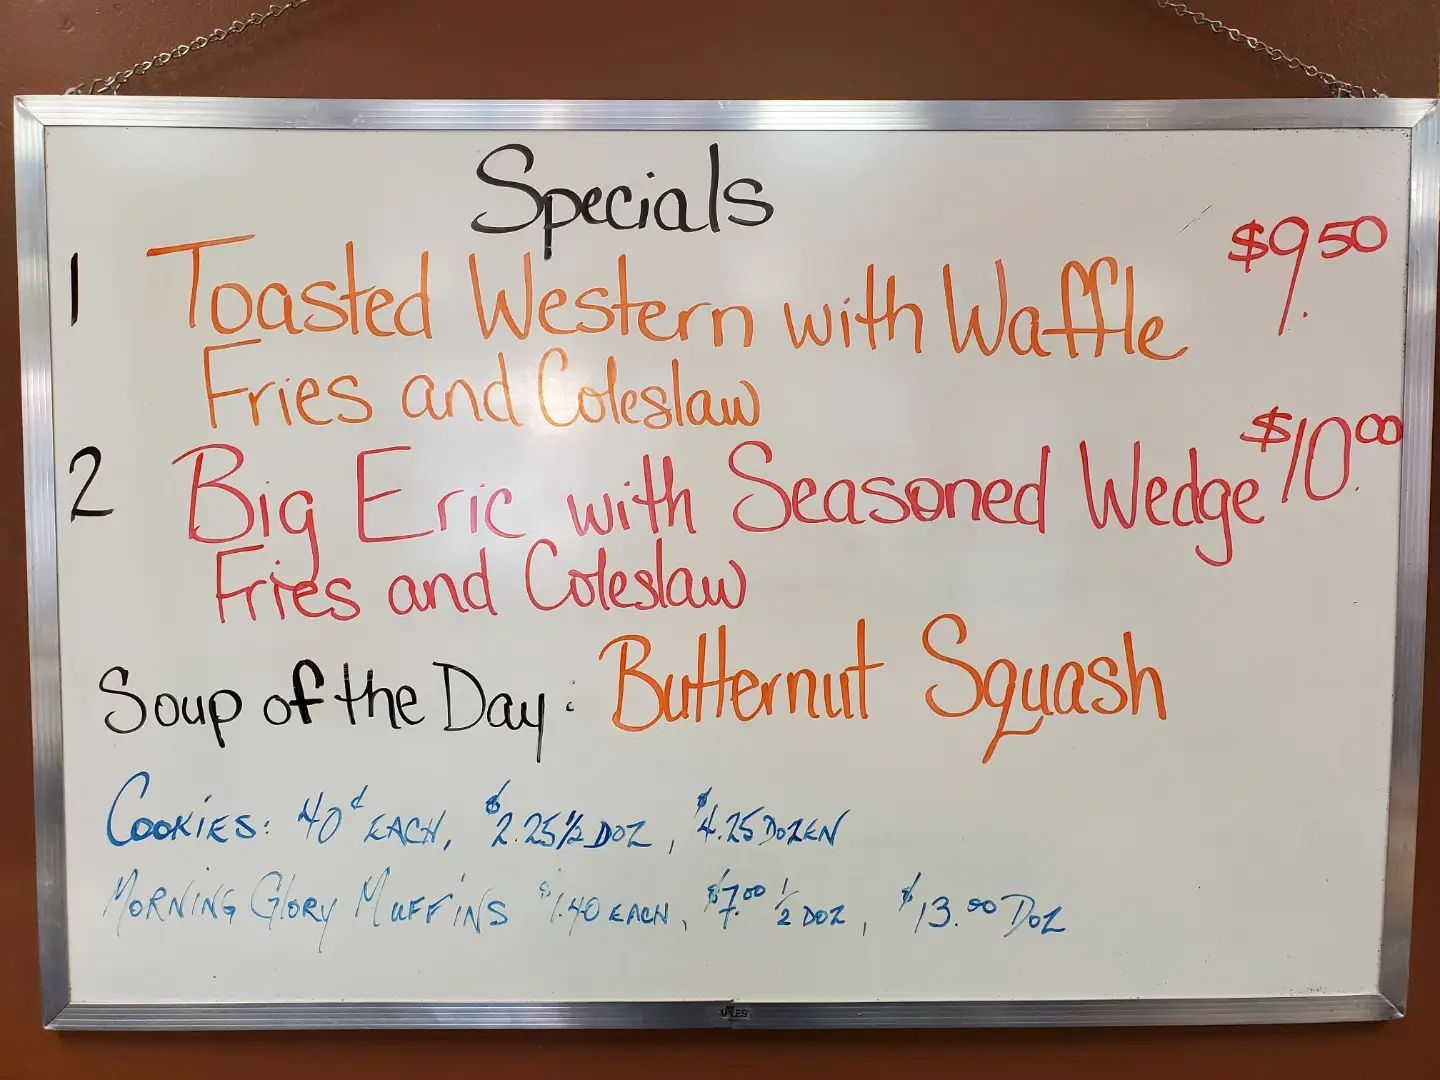 Specials
1 Toasted Western with Waffle $9.50
Fries and Coleslaw
2 Big Eric with Seasoned Wedge $10.00
Fries and Coleslaw
Soup of the Day: Butternut Squash
COOKIES: 40¢ EACH, $2.25 1/2 DOZ, $4.25 DOZEN
MORNING GLORY MUFFINS $1.40 EACH, $7.00 1/2 DOZ, $13.00 DOZ